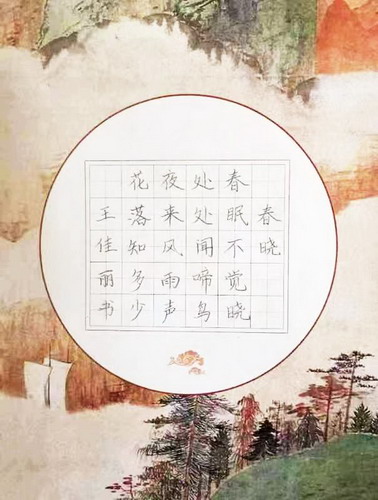 春晓
春眠不觉晓
处处闻啼鸟
夜来风雨声
花落知多少
王佳丽书